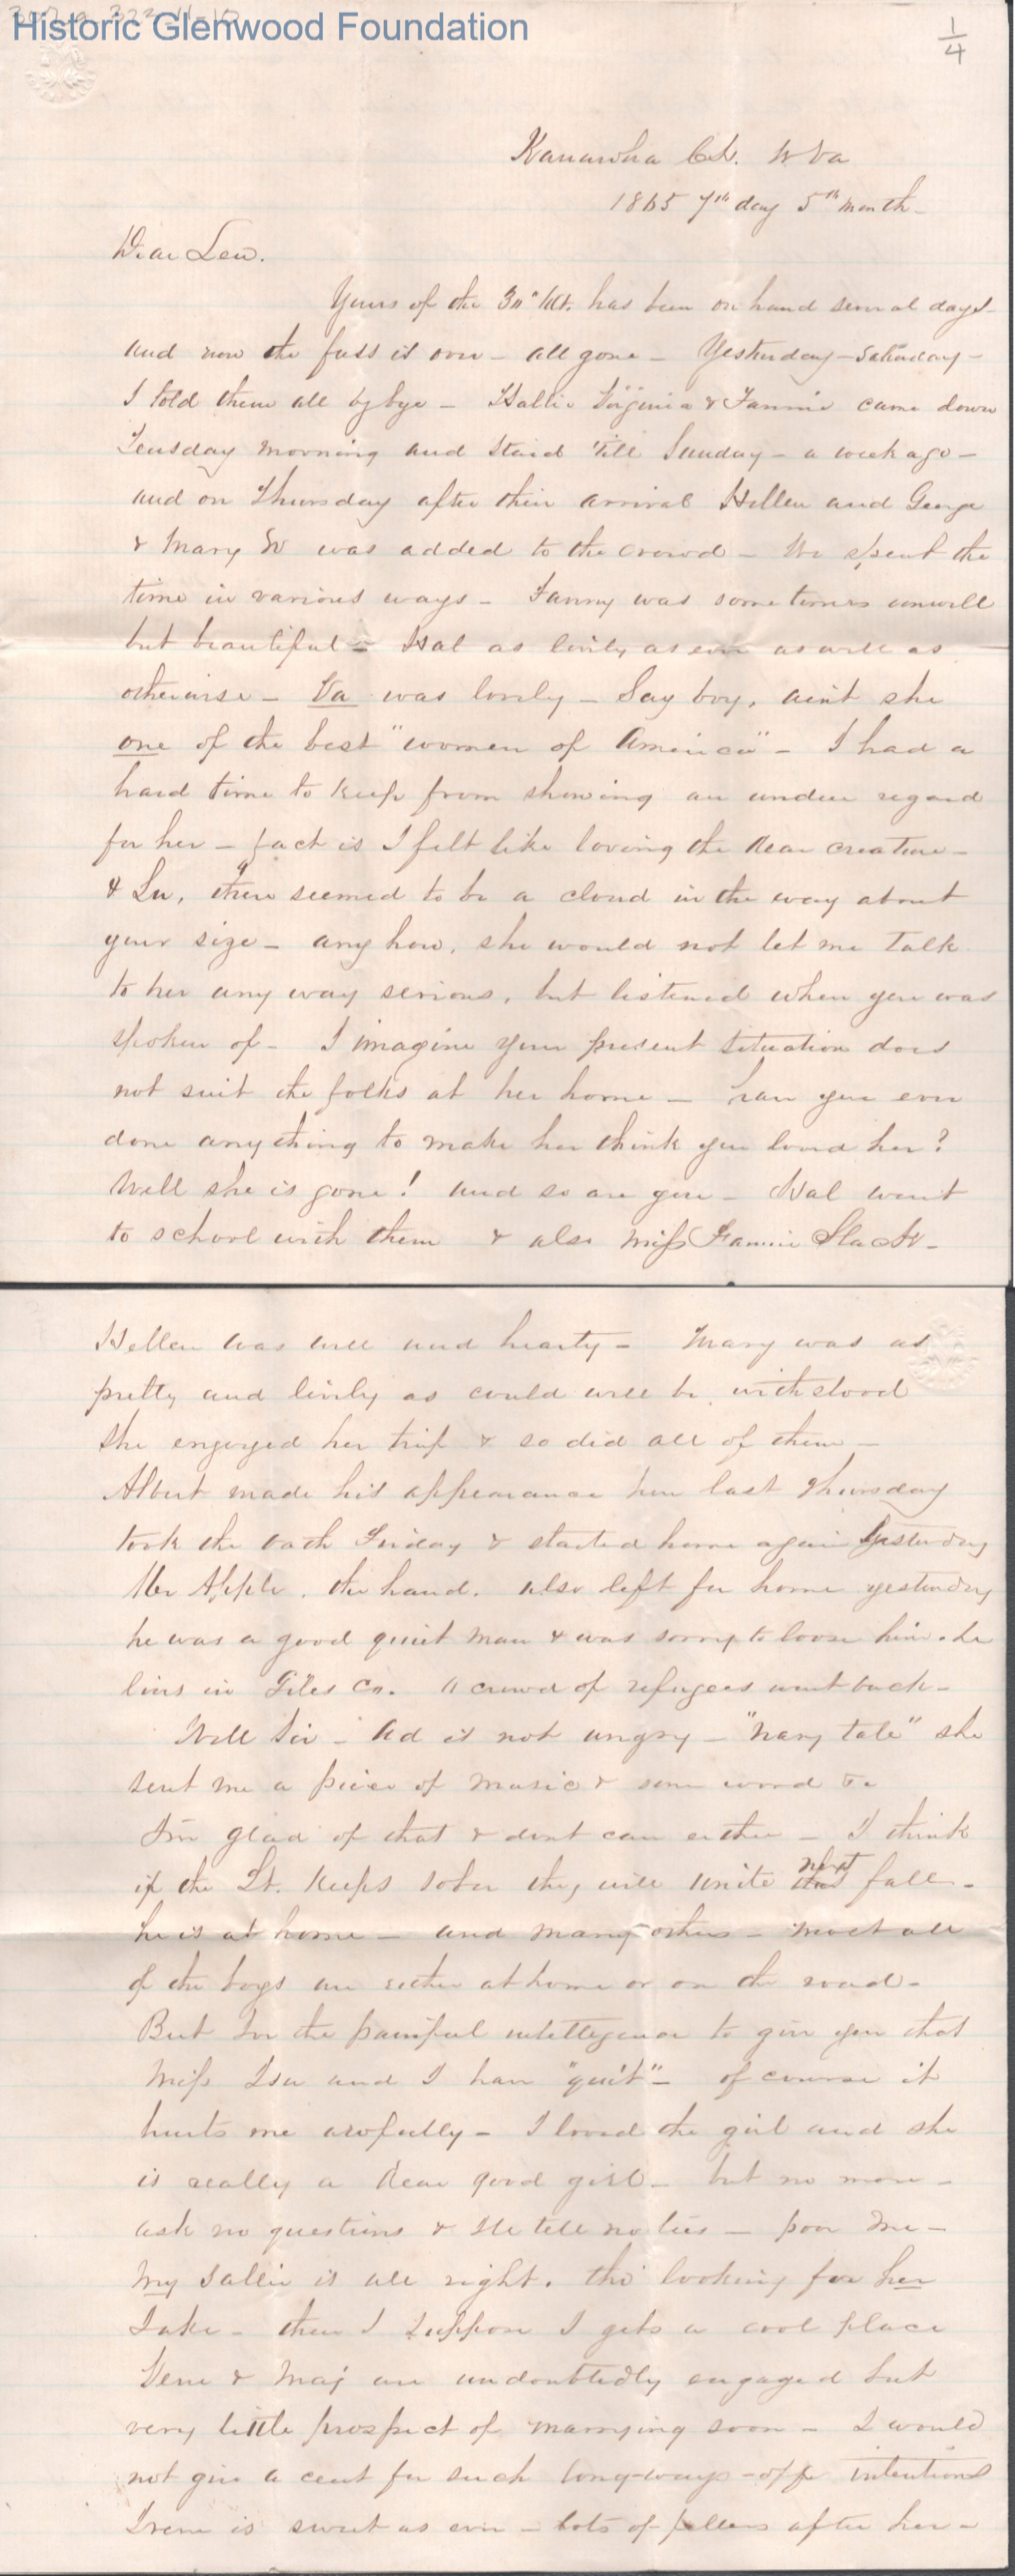 Historic Glenwood Foundation
1/4
Kanawha C.H. W Va
1865 7th day 5th month
Dear Lew.
Yours of the 30" Ult. has been on hand several days
and now the fuss is over - all gone - Yesterday - Saturday -
I told them all by bye - Hallie Virginia & Fannie came down
Teusday morning and staid 'till Sunday - a week ago -
and on Thursday after their arrival Hellen and George
& Mary W was added to the crowd - We spent the
time in various ways - Fanny was some times unwell
but beautiful - Hal as lively as ever as well as
otherwise - Va was lovely - Say boy, aint she
one of the best "women of America" - I had a
hard time to keep from showing an undue regard
for her - fact is I felt like loving the dear creature -
& Lu, there seemed to be a cloud in the way about
your size - any how, she would not let me talk
to her any way serious, but listened when you was
spoken of - I imagine your present situation does
not suit the folks at her home - have you ever
done anything to make her think you loved her?
Well she is gone! and so are you - Hal went
to school with them & also Miss Fannie Slack -
Hellen was well and hearty - Mary was as
pretty and lively as could well be withstood
She engoyed her trip & so did all of them -
Albert made his appearance here last Thursday
took the oath Friday & started home again yesterday
Mr the hand. also left for home yesterday
he was a good quiet man & was sorry to loose him. he
lives in Giles Co. A crowd of refugees went back -
Well Sir - Ad is not angry - "nary tale" she
sent me a piece of music & some word to
I'm glad of that & dont care either - I think
if the Lt. keeps sober they will unite next fall -
he is at home - and many others - most all
of the boys are either at home or on the road -
But I've the painful intelligence to give you that
Miss Lou and I have "quit" - of course it
hurts me awfully - I loved the girl and she
is really a dear good girl - but no more -
ask no questions & Ile tell no lies - poor me -
My Sallie is all right. tho' looking for her
Jake - then I suppose I gets a cool place
Gene & Maj are undoubtedly engaged but
very little prospect of marrying soon - I would
not give a cent for such long-ways-off intentions
Irene is sweet as ever - lots of fellers after her -